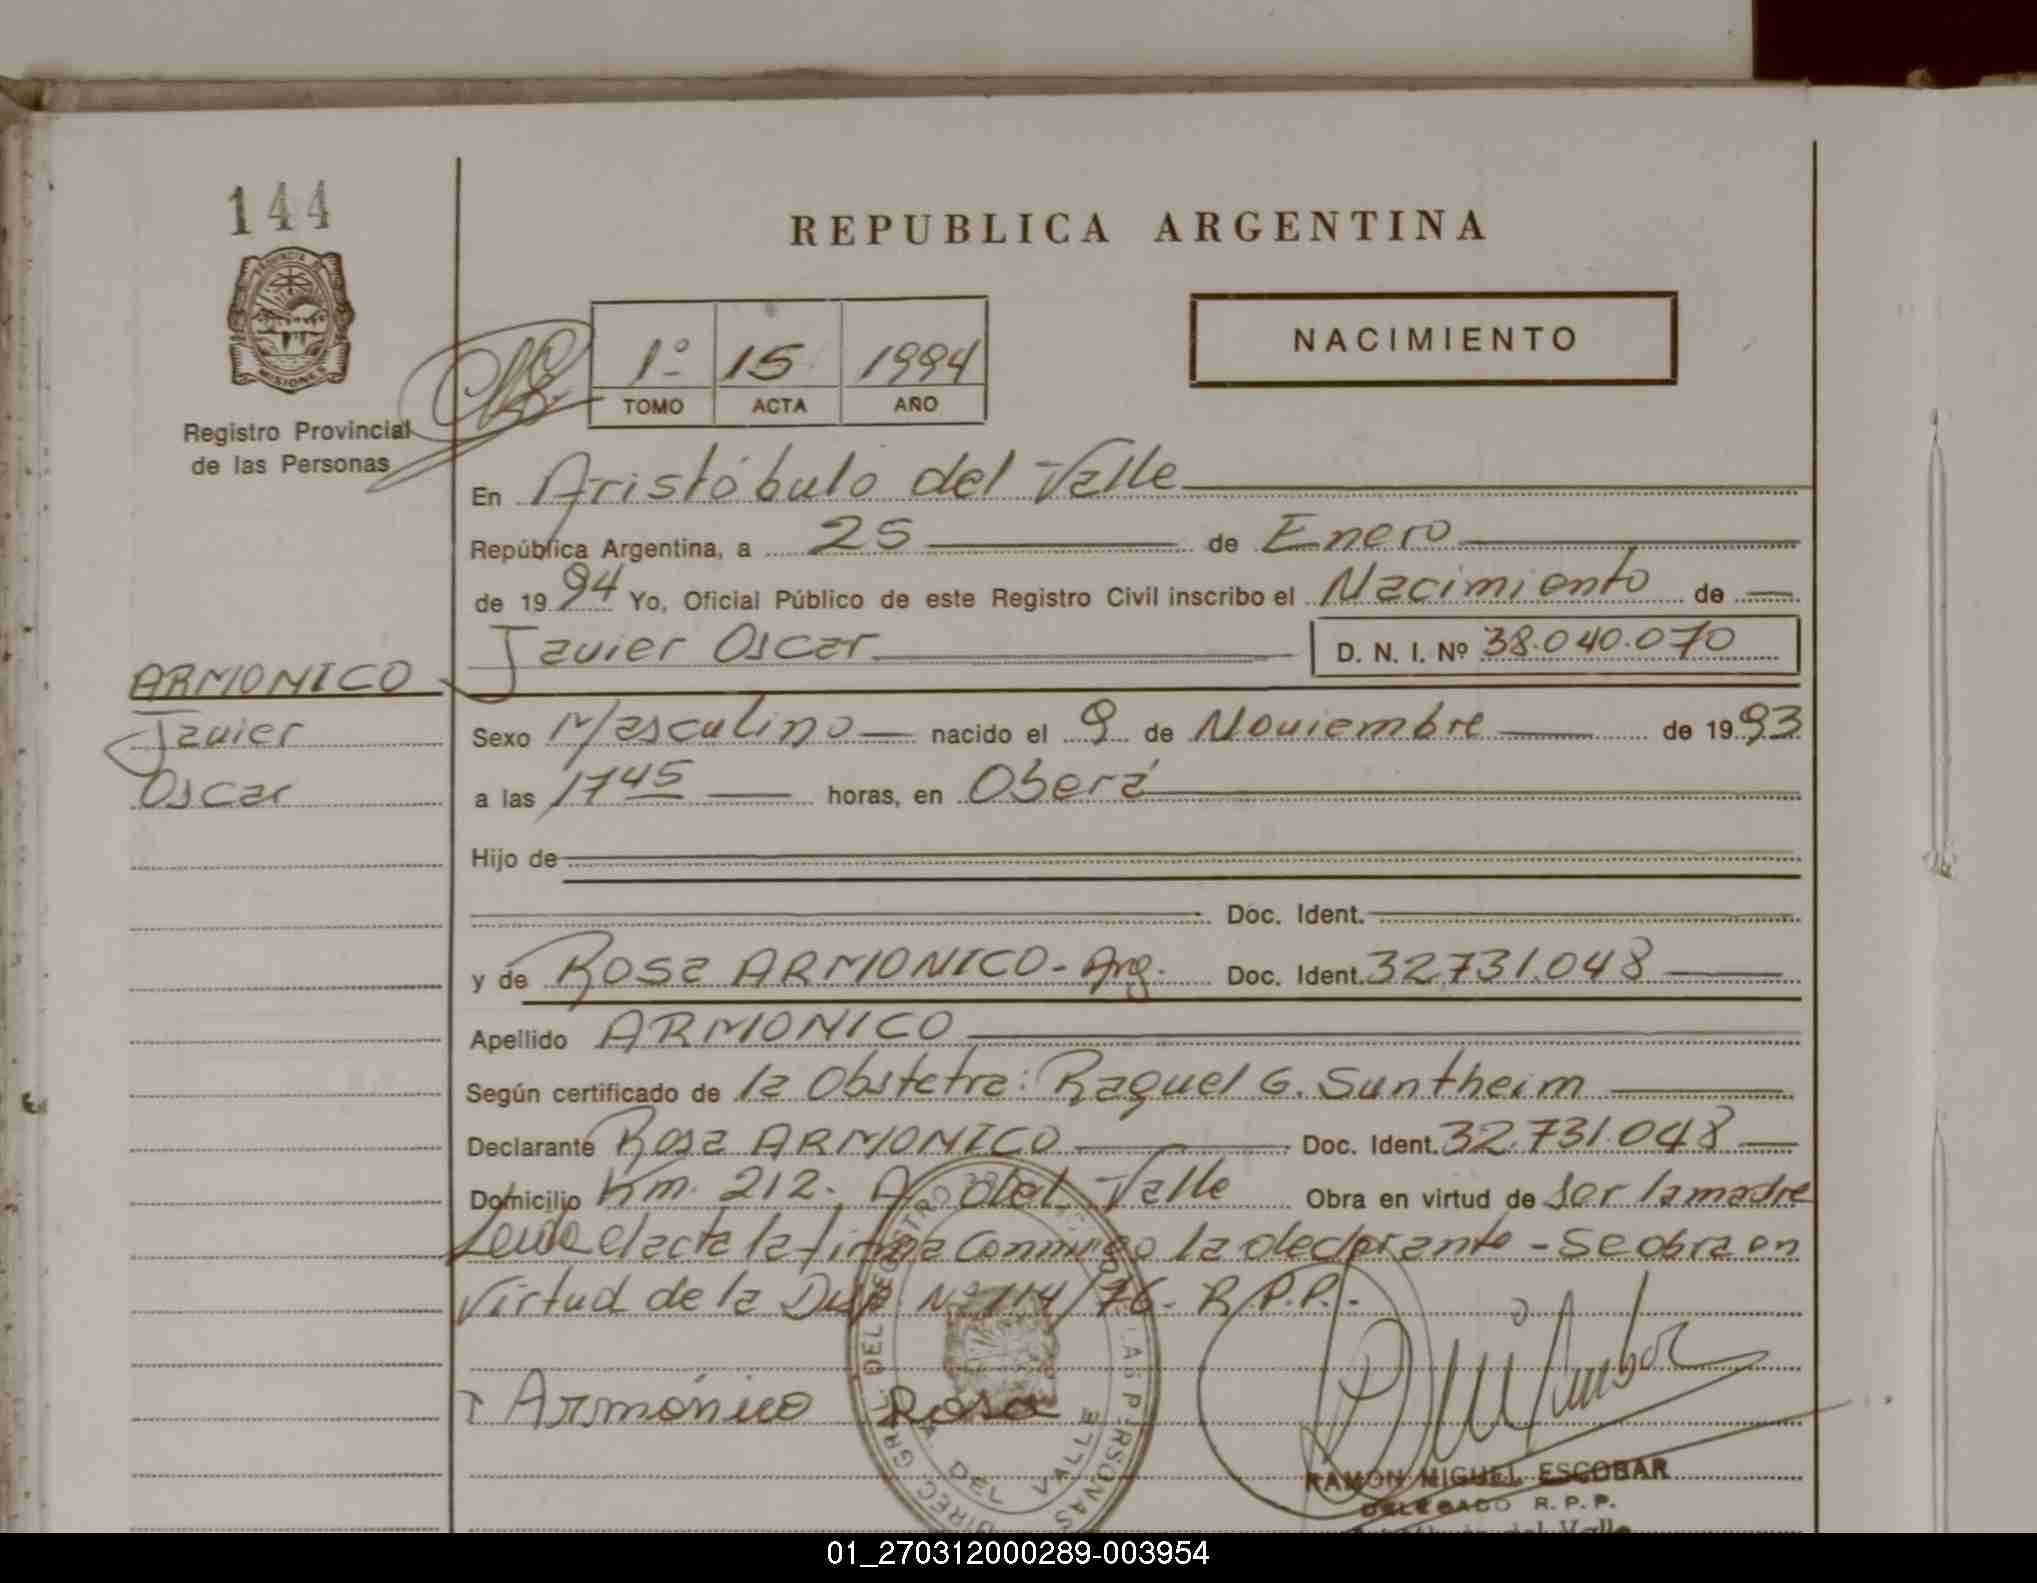 144
REPUBLICA ARGENTINA
PROVINCIA DE
MISIONES
Registro Provincial
de las Personas
1º 15 1994
TOMO ACTA AÑO
NACIMIENTO
En Aristóbulo del Valle
República Argentina, a 25 de Enero
de 1994 Yo, Oficial Público de este Registro Civil inscribo el Nacimiento de
Javier Oscar D. N. I. Nº 38.040.070
ARMONICO
Javier
Oscar
Sexo Masculino nacido el 9 de Noviembre de 1993
a las 17 45 horas, en Oberá
Hijo de
Doc. Ident.
y de Rosa ARMONICO - Arg. Doc. Ident. 32.731.048
Apellido ARMONICO
Según certificado de la Obstetra: Raquel G. Suntheim
Declarante Rosa ARMONICO Doc. Ident. 32.731.048
Domicilio Km. 212. A. del Valle Obra en virtud de ser la madre
Leida el acta la firma conmigo la declarante - Se obra en
Virtud de la Disp. Nº 114/76 - R.P.P.-
Armónico Rosa
DIREC. GRAL. DEL REGISTRO LAS PERSONAS
A. DEL VALLE
RAMON MIGUEL ESCOBAR
DELEGADO R. P. P.
01_270312000289-003954